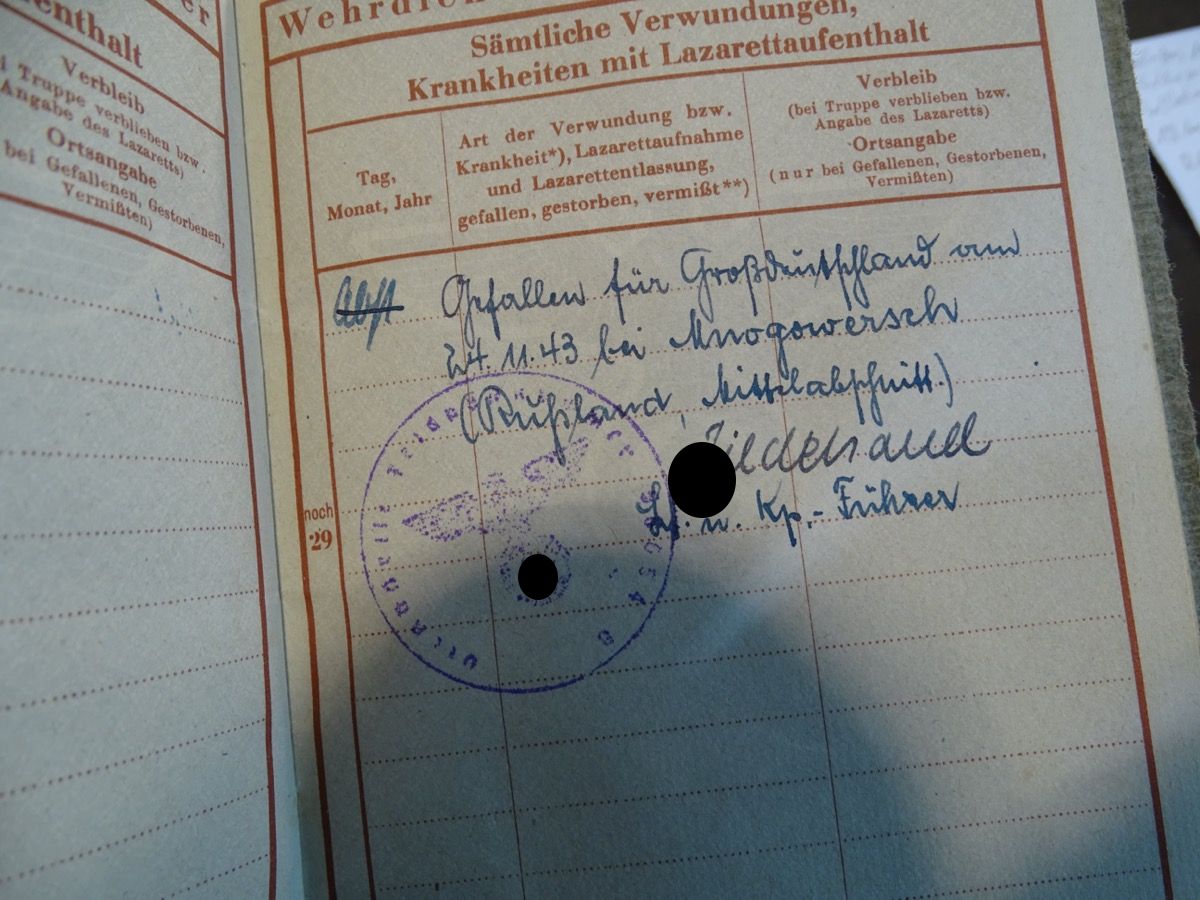 enthalt
Verbleib
i Truppe verblieben bzw.
Angabe des Lazaretts)
Ortsangabe
bei Gefallenen, Gestorbenen,
Vermißten)
Sämtliche Verwundungen,
Krankheiten mit Lazarettaufenthalt
Tag,
Monat, Jahr
Art der Verwundung bzw.
Krankheit*), Lazarettaufnahme
und Lazarettentlassung,
gefallen, gestorben, vermißt**)
Verbleib
(bei Truppe verblieben bzw.
Angabe des Lazaretts)
Ortsangabe
(nur bei Gefallenen, Gestorbenen,
Vermißten)
Gefallen für Großdeutschland am
24.11.43 bei Mnogowersch
(Rußland, Mittelabschnitt.)
Lt. u. Kp.-Führer
noch
29